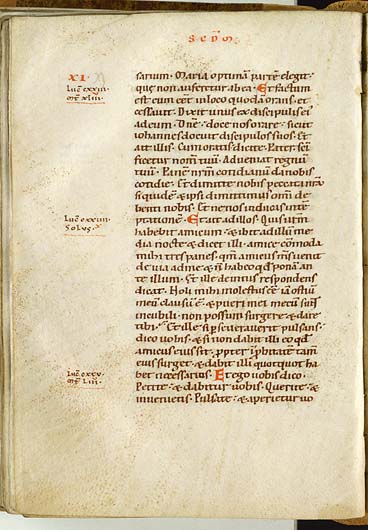 SCDM
XI.
Luc cxxiii
Mt xliii
sarium. Maria optimā partē elegit.
quę non auferetur ab ea. Et factum
est cum eēt in loco quodā orans. et
cessavit. Dixit unus ex discipulis ei
ad eum. Dñe. doce nos orare. sicut
iohannes docuit discipulos suos. Et
ait illis. Cum oratis dicite. Pater. san
ficetur nomen tuū. Adveniat regnū
tuū. Panē nrm cotidianū da nobis
cotidie. Et dimitte nobis peccata nra
siquidē & ipsi dimittimus omi de
benti nobis. Et ne nos inducas in te
ptationē. Et ait ad illos. Quis urm
habebit amicum & ibit ad illū me
dia nocte & dicet illi. amice cōmoda
mihi tres panes. qm amicus ms venit
de via ad me & ñ habeo qd ponā an
te illum. Et ille deintus respondens
dicat. Noli mihi molestus ēē. iā ostiū
meū clausū ē. & pueri mei mecū sunt
in cubili. non possum surgere & dare
tibi. Et ille si pseveraverit pulsans.
dico vobis. & si non dabit illi eo qd
amicus eius sit. ppter improbitatē tam
eius surget. & dabit illi quotquot ha
bet necessarios. Et ego vobis dico.
Petite. & dabitur vobis. Querite. &
invenietis. Pulsate. & aperietur vo
Luc cxxiiii
Solus.
Luc cxxv
Mt Liii.